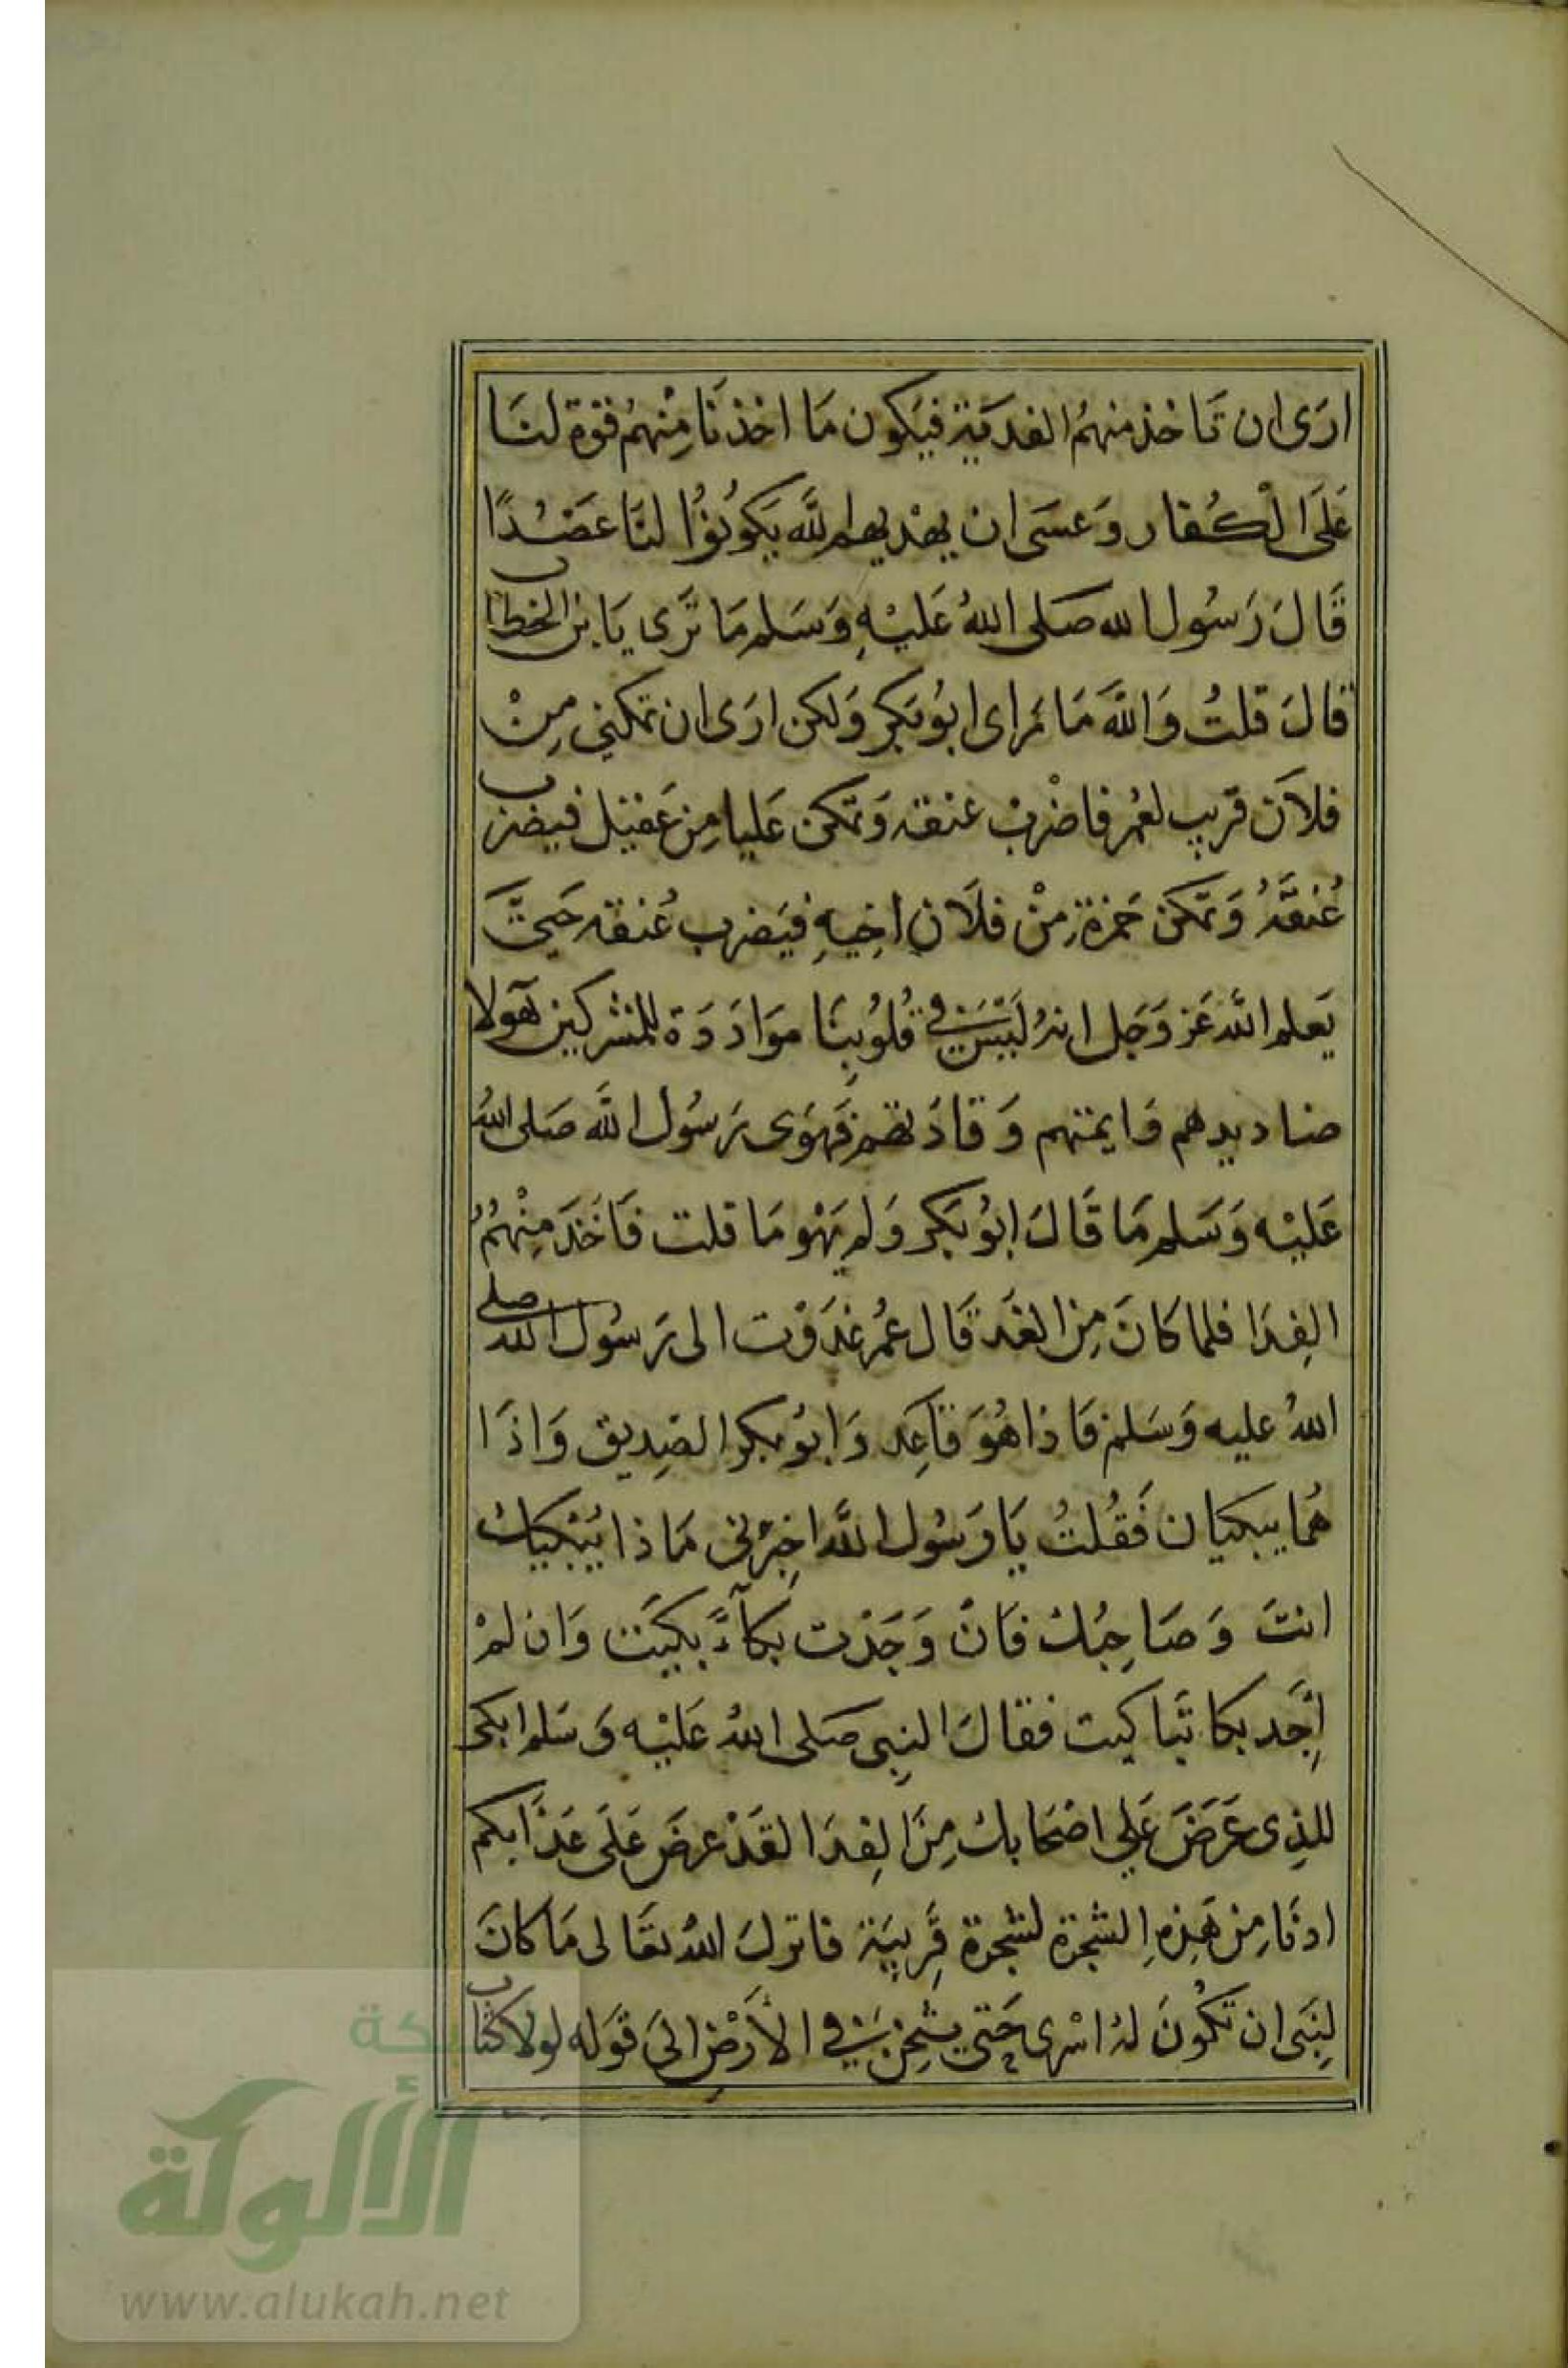 ارَى ان تَاخذ منهمُ الفديَة فيَكون مَا اخذنَا مِنْهمُ قوة لنَا
عَلَى الْكُفار وَعسَى ان يهْديهم اللَّه يَكوُنوُا لنَا عَضُدًا
قَالَ رَسُول الله صَلى اللهُ عَليْهِ وَسَلم مَا تَرَى يَا بن الخطاب
قالَ قلتُ وَاللَّه مَا نرا اى ابوُ بَكر وَلكن ارَى ان تمكني مِنْ
فلاَن قريب لعُمر فاضْربْ عنقه وَتمكن عَليا مِن عَقيْل فيضرب
عُنقَهُ وَتمَكن حَمزة مِنْ فلاَن اخِيهِ فيَضرب عُنقه حَتىَّ
يَعلم اللَّه عَز وَجَل انهُ لَيْسَ فى قُلوُبِنَا موَادَدَة للمشركين هَولا
صناديدهم وَايمتهم وَقادَتهم فَهَوَى رَسُول اللَّه صَلى اللهُ
عَليْه وَسَلم مَا قَالَ ابوُ بَكر وَلم يَهْو مَا قلت فَاخَذ مِنْهُمُ
الفِدَا فلما كانَ مِن الغَد قَال عُمر غدَوْت الى رَسُول الله صلى
اللهُ عليه وَسَلم فَاذا هُوَ قَاعِد وَابوُ بكر الصِديق وَاذَا
هُما يبكيان فَقُلتُ يَا رَسُول اللَّه اخِبرْنى مَاذا يُبْكيك
انتَ وَصَاحِبُك فَانْ وَجَدْت بكآءً بكيَت وَان لمْ
اجَِد بكا تَباكيت فقالَ النبِى صَلى اللهُ عَليْه وَسَلم ابكى
للذِى عَرَضَ عَلي اصْحَابك مِنَ الفِدَا لقَدْ عرضَ عَلَى عَذَابكم
ادنَا مِن هَذِهِ الشجَرَة لشجَرة قَرِيبَة فانزلَ اللهُ تعَالى مَا كانَ
لِنَبَى ان تَكُونَ لهُ اسْرى حَتى يثخِن فِي الأَرْضِ الىَ قوَله لولاَ كتاب
شبكة
الألوكة
www.alukah.net